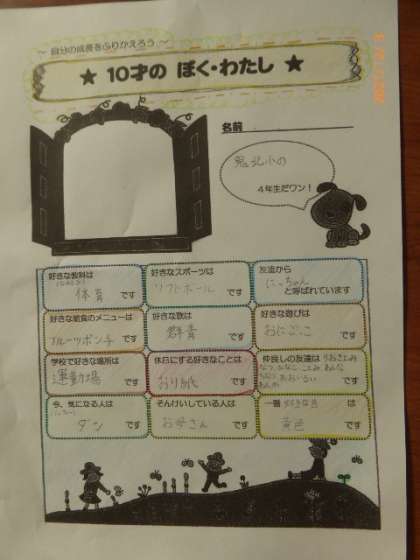 ～ 自分の成長をふりかえろう ～
★ 10才の ぼく・わたし ★
名前
鬼北小の
4年生だワン！
好きな教科は
体育
です
好きなスポーツは
ソフトボール
です
友達から
にっちゃん
と呼ばれています
好きな給食のメニューは
フルーツポンチ
です
好きな歌は
群青
です
好きな遊びは
おにごっこ
です
学校で好きな場所は
運動場
です
休日にする好きなことは
おり紙
です
仲良しの友達は
です
今、気になる人は
ダン
です
そんけいしている人は
お母さん
です
一番 好きな色 は
黄色
です